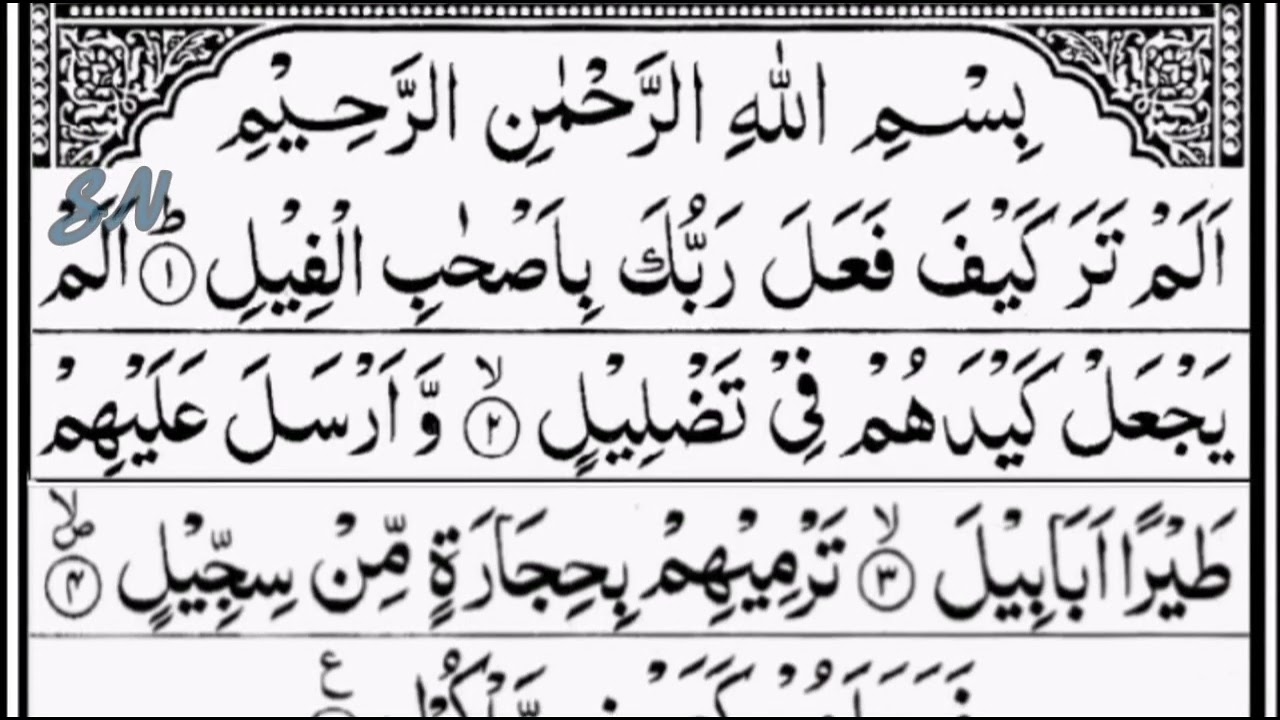 بِسْمِ اللهِ الرَّحْمٰنِ الرَّحِيْمِ
اَلَمْ تَرَ كَيْفَ فَعَلَ رَبُّكَ بِاَصْحٰبِ الْفِيْلِ ؕ ۱ اَلَمْ
يَجْعَلْ كَيْدَهُمْ فِيْ تَضْلِيْلٍ ۙ ۲ وَّ اَرْسَلَ عَلَيْهِمْ
طَيْرًا اَبَابِيْلَ ۙ ۳ تَرْمِيْهِمْ بِحِجَارَةٍ مِّنْ سِجِّيْلٍ ۙ ص ۴
ع
SN